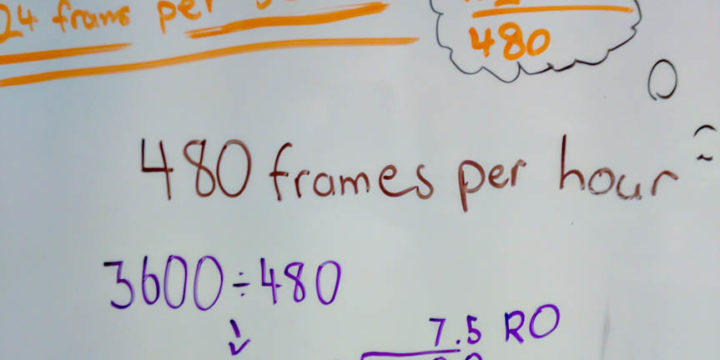 24 frams per
480
480 frames per hour
3600÷480
7.5 RO